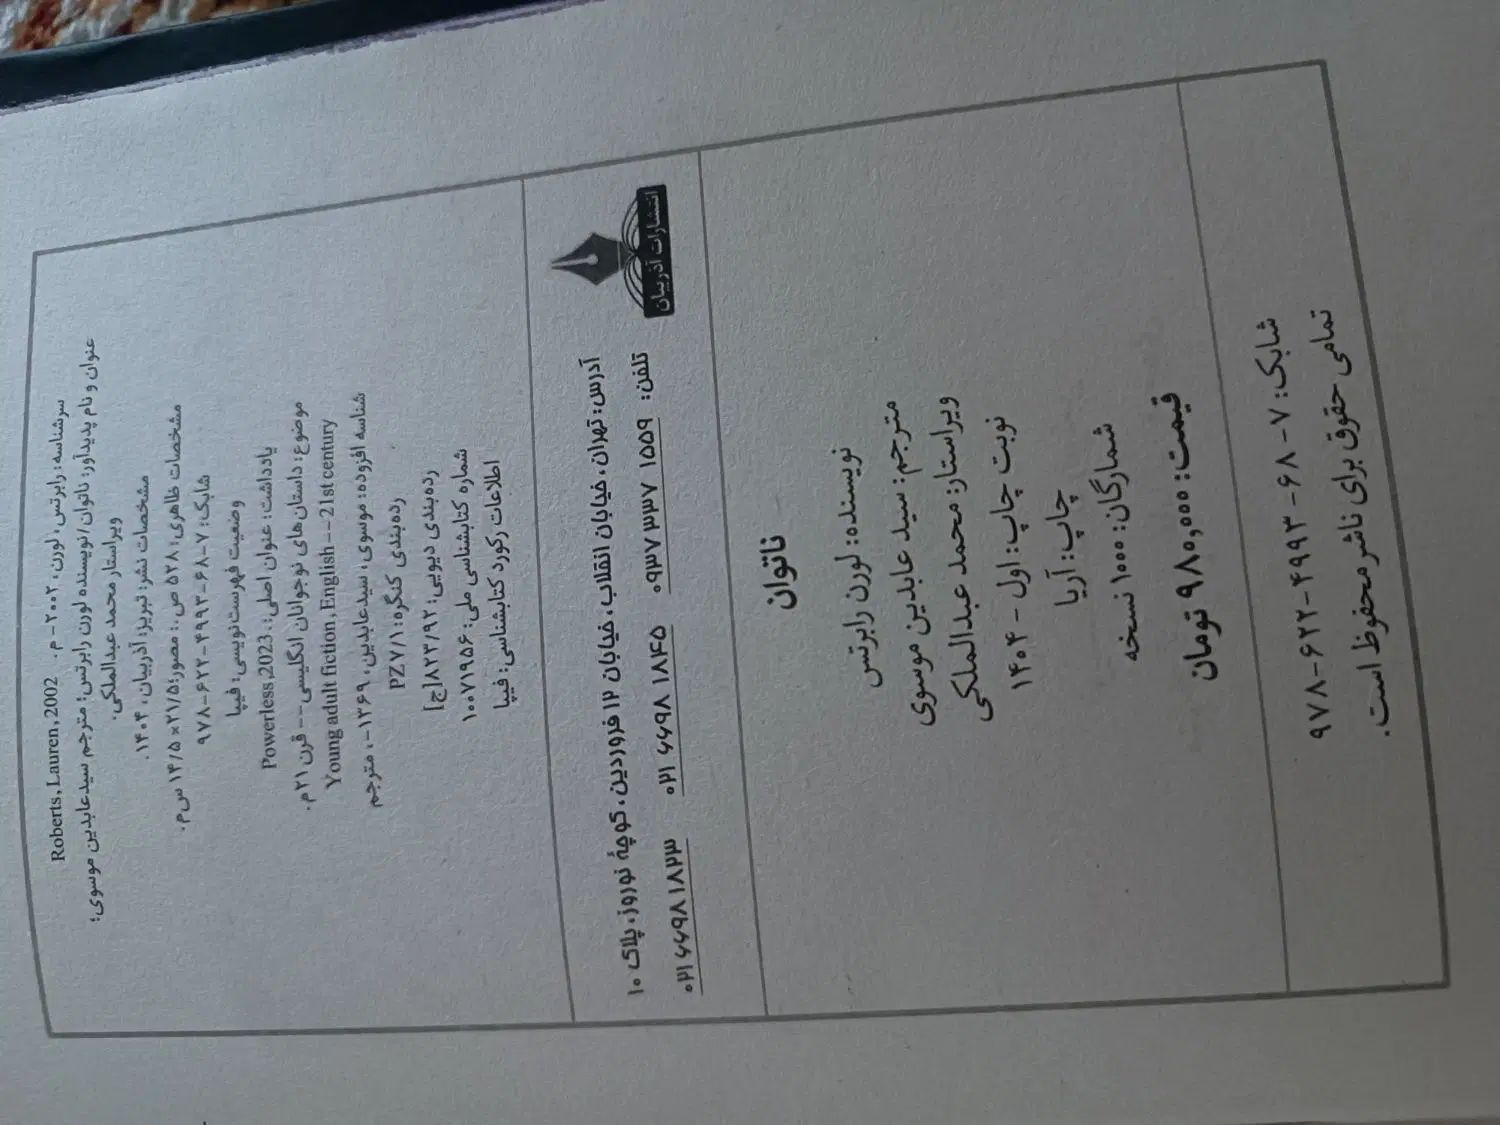 سرشناسه: رابرتس، لورن، ۲۰۰۲ - م. Roberts, Lauren, 2002
عنوان و نام پدیدآور: ناتوان/نویسنده لورن رابرتس؛ مترجم سیدعابدین موسوی؛
ویراستار محمد عبدالملکی.
مشخصات نشر: تبریز: آذربیان، ۱۴۰۴.
مشخصات ظاهری: ۵۲۸ ص.: مصور؛ ۲۱/۵×۱۴/۵ س‌م.
شابک: ۷-۶۸-۴۹۹۳-۶۲۲-۹۷۸
وضعیت فهرست‌نویسی: فیپا
یادداشت: عنوان اصلی: Powerless,2023.
موضوع: داستان‌های نوجوانان انگلیسی -- قرن ۲۱ م.
Young adult fiction, English -- 21st century
شناسه افزوده: موسوی، سیدعابدین، ۱۳۶۹-، مترجم
رده‌بندی کنگره: PZ۷/۱
رده‌بندی دیویی: ۸۲۳/۹۲[ج]
شماره کتابشناسی ملی: ۱۰۰۷۱۹۵۶
اطلاعات رکورد کتابشناسی: فیپا
انتشارات آذربیان
آدرس: تهران، خیابان انقلاب، خیابان ۱۲ فروردین، کوچهٔ نوروز، پلاک ۱۰
تلفن: ۰۹۳۷ ۳۳۷ ۱۵۵۹ ۰۲۱ ۶۶۹۸ ۱۸۴۵ ۰۲۱ ۶۶۹۸ ۱۸۲۳
ناتوان
نویسنده: لورن رابرتس
مترجم: سید عابدین موسوی
ویراستار: محمد عبدالملکی
نوبت چاپ: اول - ۱۴۰۴
چاپ: آریا
شمارگان: ۱۰۰۰ نسخه
قیمت: ۹۸۰,۰۰۰ تومان
شابک: ۷-۶۸-۴۹۹۳-۶۲۲-۹۷۸
تمامی حقوق برای ناشر محفوظ است.